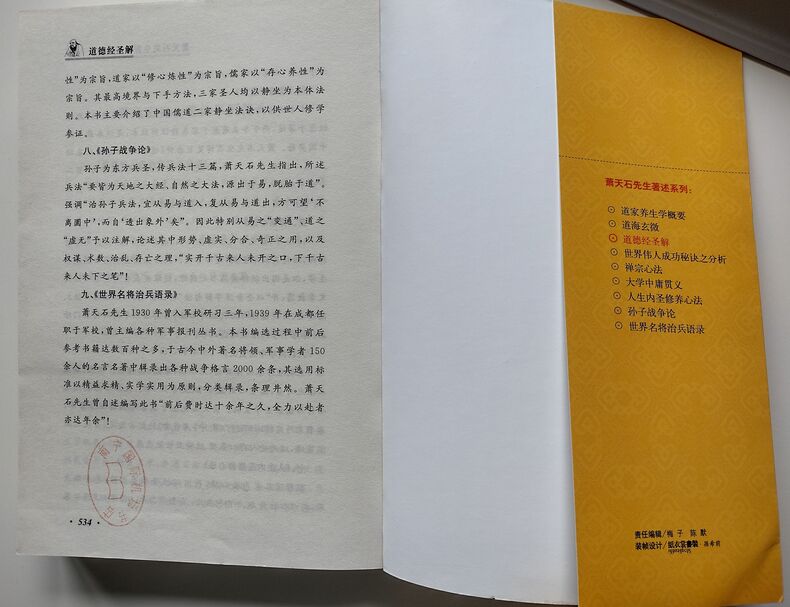 道德经圣解
性”为宗旨，道家以“修心炼性”为宗旨，儒家以“存心养性”为
宗旨。其最高境界与下手方法，三家圣人均以静坐为本体法
则。本书主要介绍了中国儒道二家静坐法诀，以供世人修学
参证。
八、《孙子战争论》
孙子为东方兵圣，传兵法十三篇，萧天石先生指出，所述
兵法“要皆为天地之大经、自然之大法，源出于易，脱胎于道”。
强调“治孙子兵法，宜从易与道入，复从易与道出，方可望‘不
离圜中’，而自‘透出象外’矣”。因此特别从易之“变通”、道之
“虚无”予以注解，论述其中形势、虚实、分合、奇正之用，以及
权谋、术数、治乱、存亡之理，“实开千古来人未开之口，下千古
来人未下之笔”！
九、《世界名将治兵语录》
萧天石先生1930年曾入军校研习三年，1939年在成都任
职于军校，曾主编各种军事报刊丛书。本书编选过程中前后
参考书籍达数百种之多，于古今中外著名将领、军事学者150
余人的名言名著中辑录出各种战争格言2000余条，其选用标
准以精益求精、实学实用为原则，分类辑录，条理井然。萧天
石先生曾自述编写此书“前后费时达十余年之久，全力以赴者
亦达年余”！
·534·
萧天石先生著述系列：
⊙ 道家养生学概要
⊙ 道海玄微
⊙ 道德经圣解
⊙ 世界伟人成功秘诀之分析
⊙ 禅宗心法
⊙ 大学中庸贯义
⊙ 人生内圣修养心法
⊙ 孙子战争论
⊙ 世界名将治兵语录
责任编辑/梅子 陈默
装帧设计/纸衣裳書裝·孫希前